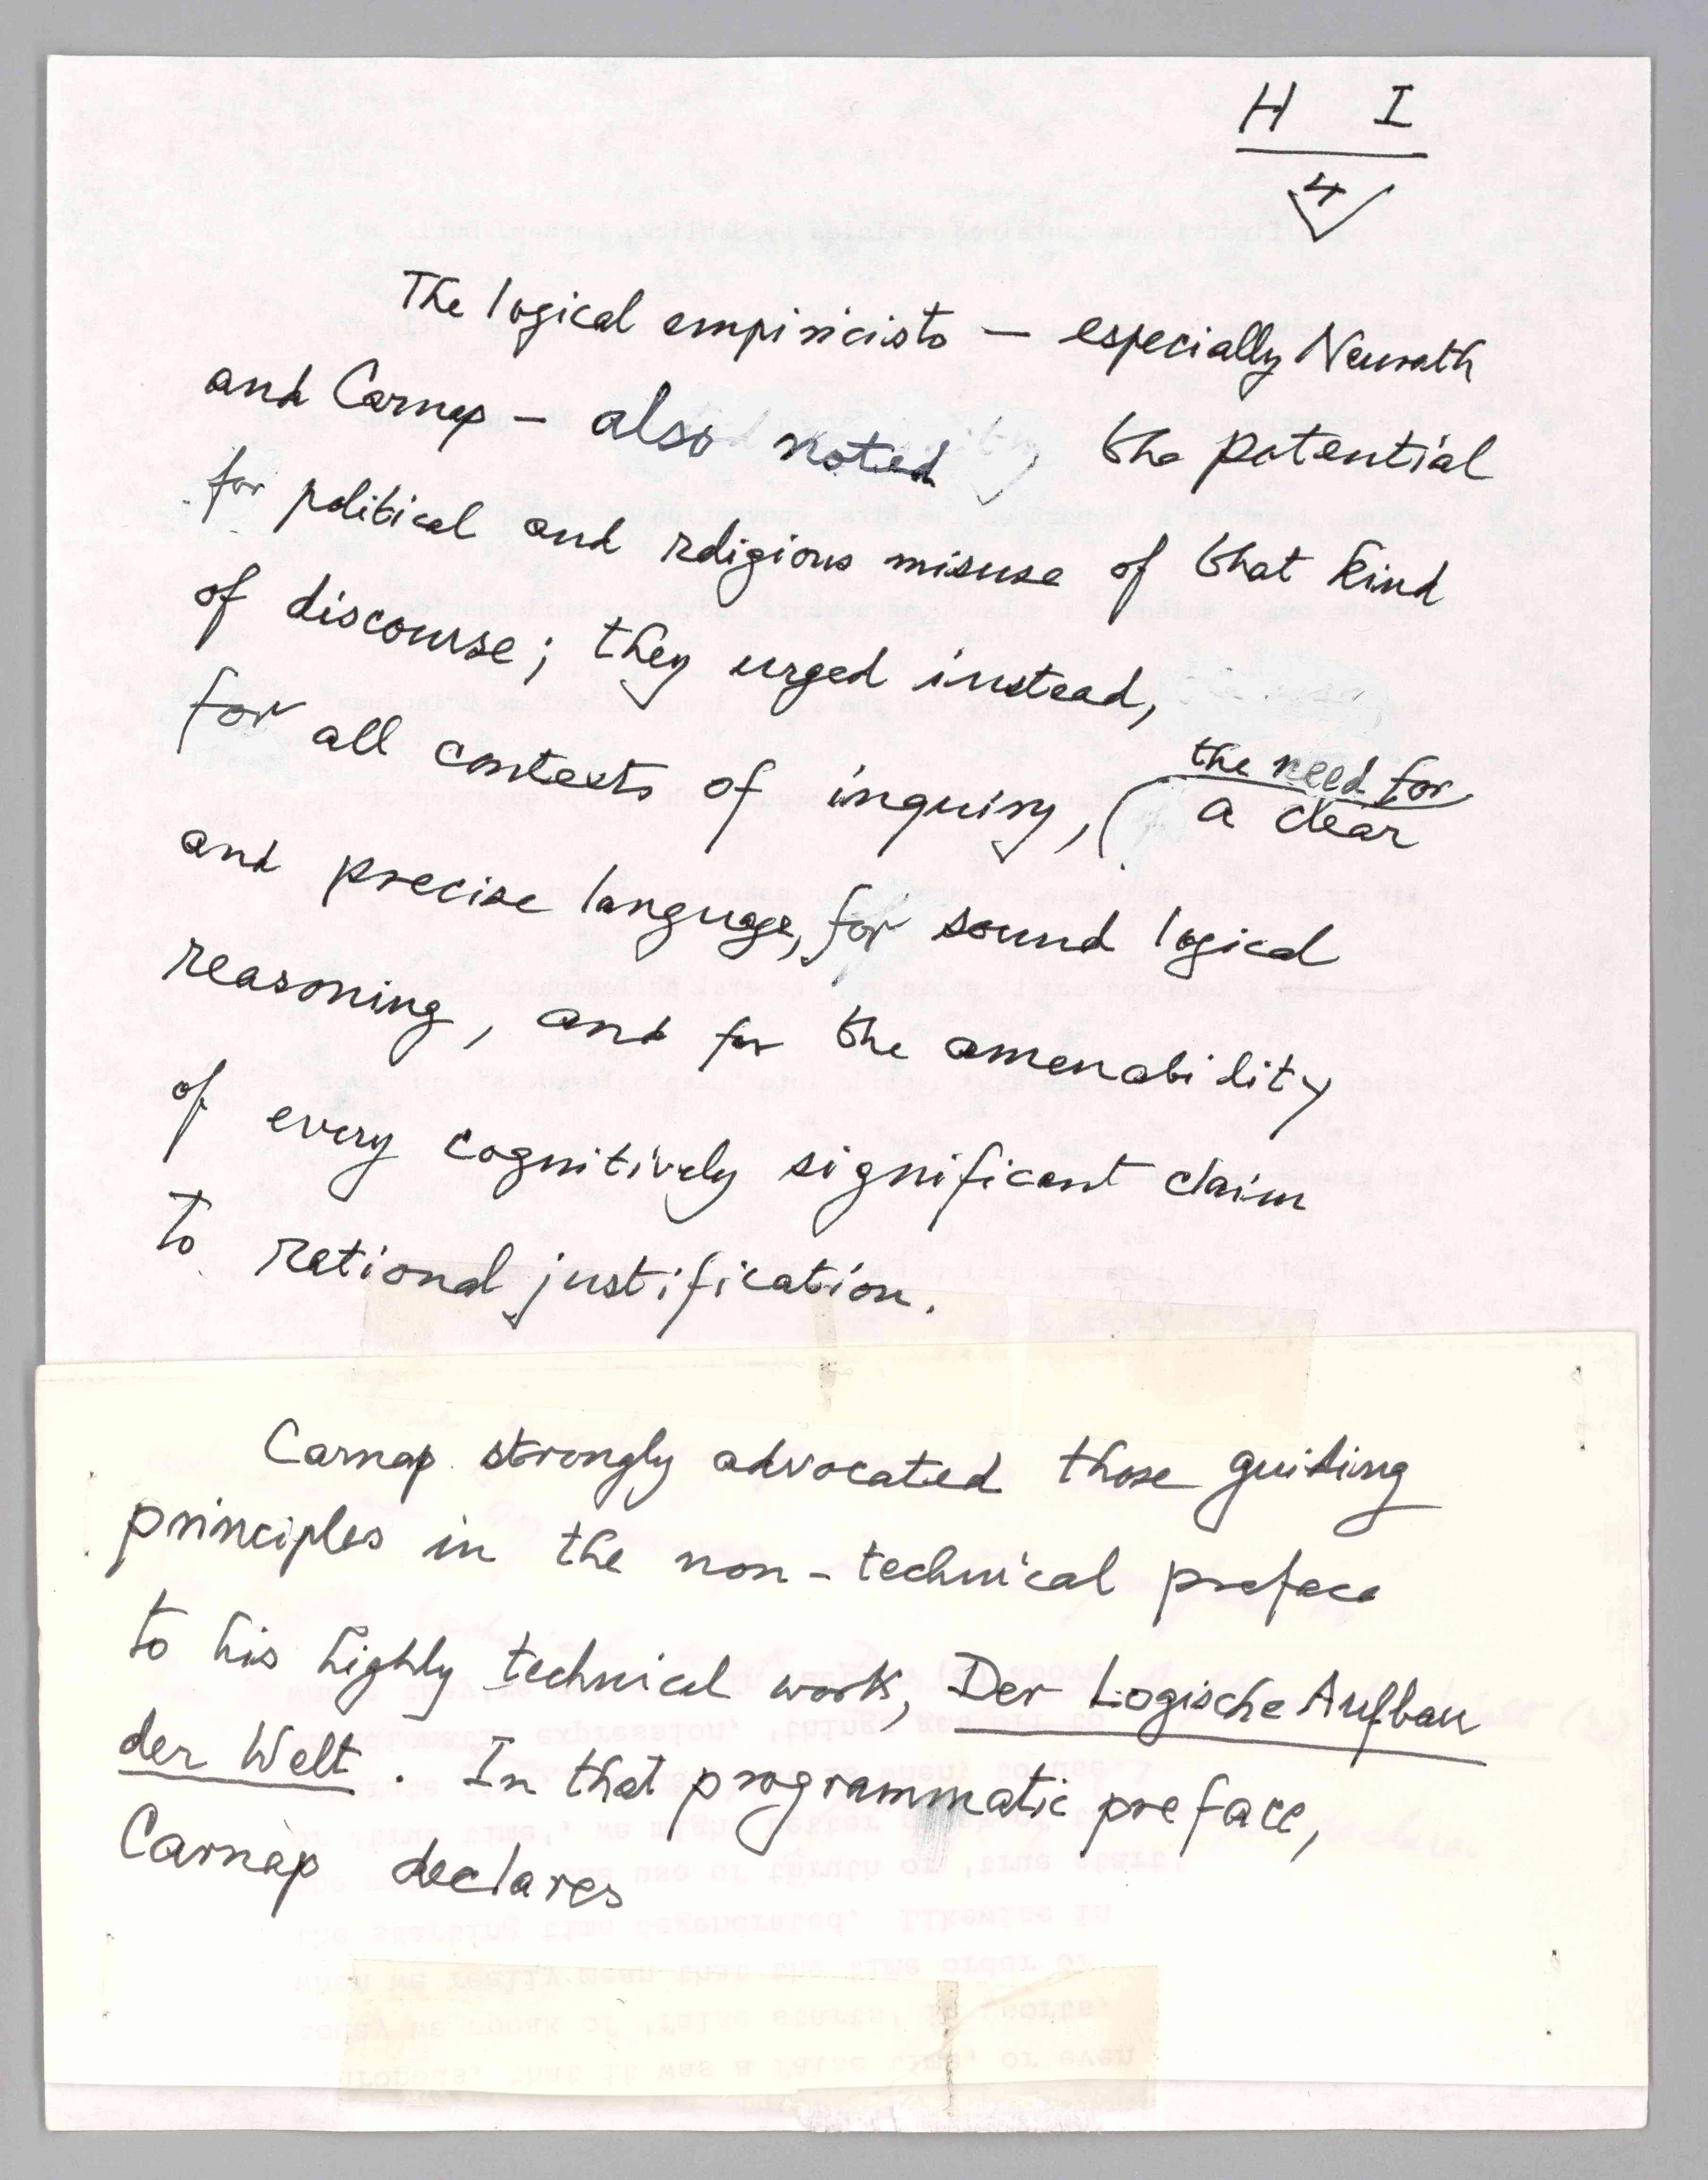 H I
4
The logical empiricists — especially Neurath
and Carnap — also noted the potential
for political and religious misuse of that kind
of discourse; they urged instead,
for all contexts of inquiry, the need for
a clear
and precise language, for sound logical
reasoning, and for the amenability
of every cognitively significant claim
to rational justification.
Carnap strongly advocated those guiding
principles in the non-technical preface
to his highly technical work, Der Logische Aufbau
der Welt. In that programmatic preface,
Carnap declares